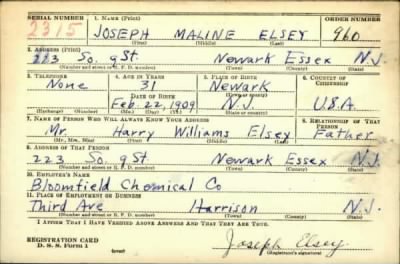 SERIAL NUMBER 1. NAME (Print) ORDER NUMBER
2315 JOSEPH MALINE ELSEY 960
(First) (Middle) (Last)
2. ADDRESS (Print)
223 So. 9 St Newark Essex N.J.
(Number and street or R. F. D. number) (Town) (County) (State)
3. TELEPHONE 4. AGE IN YEARS 5. PLACE OF BIRTH 6. COUNTRY OF CITIZENSHIP
None 31 Newark
DATE OF BIRTH (Town or county)
Feb. 22, 1909 N.J. U.S.A.
(Exchange) (Number) (Mo.) (Day) (Yr.) (State or country)
7. NAME OF PERSON WHO WILL ALWAYS KNOW YOUR ADDRESS 8. RELATIONSHIP OF THAT PERSON
Mr. Harry Williams Elsey Father
(Mr., Mrs., Miss) (First) (Middle) (Last)
9. ADDRESS OF THAT PERSON
223 So. 9 St Newark Essex N.J.
(Number and street or R. F. D. number) (Town) (County) (State)
10. EMPLOYER'S NAME
Bloomfield Chemical Co
11. PLACE OF EMPLOYMENT OR BUSINESS
Third Ave Harrison N.J.
(Number and street or R. F. D. number) (Town) (County) (State)
I AFFIRM THAT I HAVE VERIFIED ABOVE ANSWERS AND THAT THEY ARE TRUE.
REGISTRATION CARD
D. S. S. Form 1 (over) Joseph Elsey
(Registrant's signature)